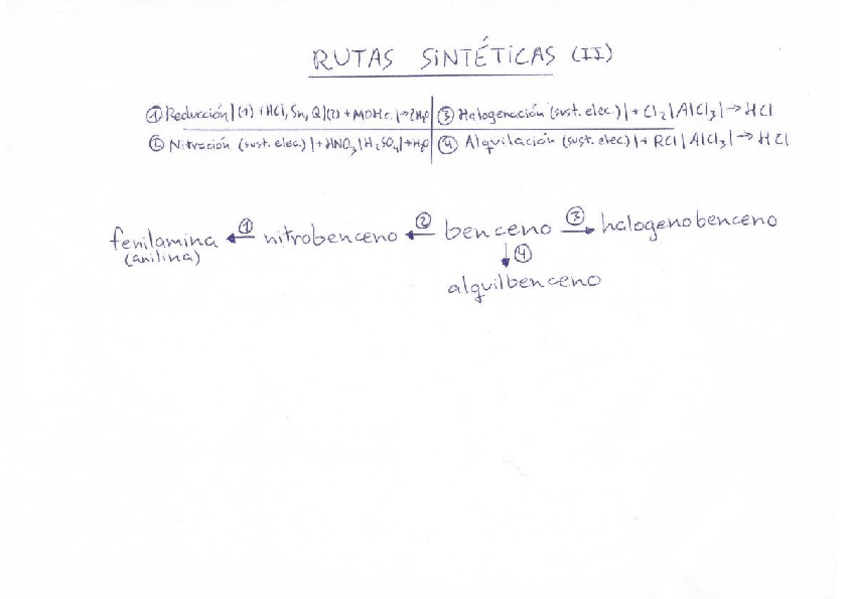 RUTAS SINTÉTICAS (II)
① Reducción | (1) + HCl, Sn, Q | (2) + MOH | → 2H₂O
③ Halogenación (sust. elec.) | + Cl₂ | AlCl₃ | → HCl
② Nitración (sust. elec.) | + HNO₃ | H₂SO₄ | → H₂O
④ Alquilación (sust. elec) | + RCl | AlCl₃ | → HCl
fenilamina ← ① nitrobenceno ← ② benceno ③ → halogenobenceno
(anilina)
↓ ④
alquilbenceno